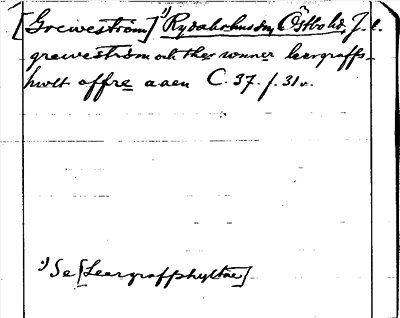 [Greweström] ¹) Rydaholms sn, Östbo hd, J. l.
grewestrom och ther wunner leergraffs-
hwlt offre aaen C. 37. f. 31 v.
¹) Se [Leergraffshyltae]